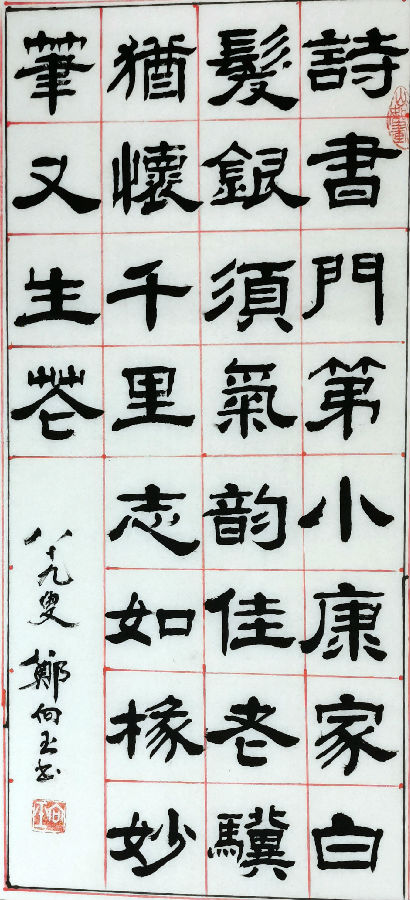 詩書門第小康家白
髮銀須氣韵佳老驥
猶懷千里志如椽妙
筆又生花
八十九叟 鄭向玉書